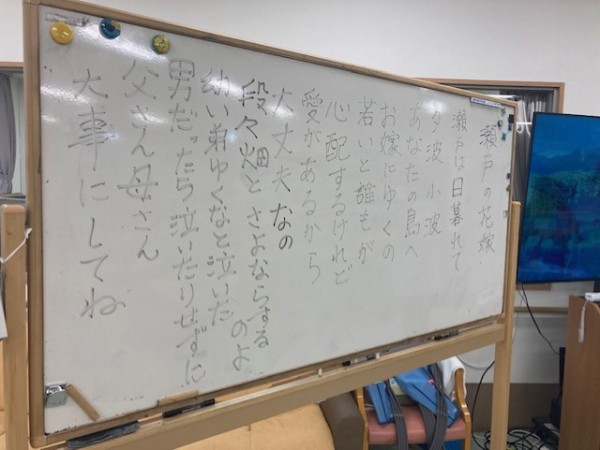 瀬戸の花嫁
瀬戸は日暮れて
夕波小波
あなたの島へ
お嫁にゆくの
若いと誰もが
心配するけれど
愛があるから
大丈夫なの
段々畑とさよならする
のよ
幼い弟ゆくなと泣いた
男だったら泣いたりせずに
父さん母さん
大事にしてね